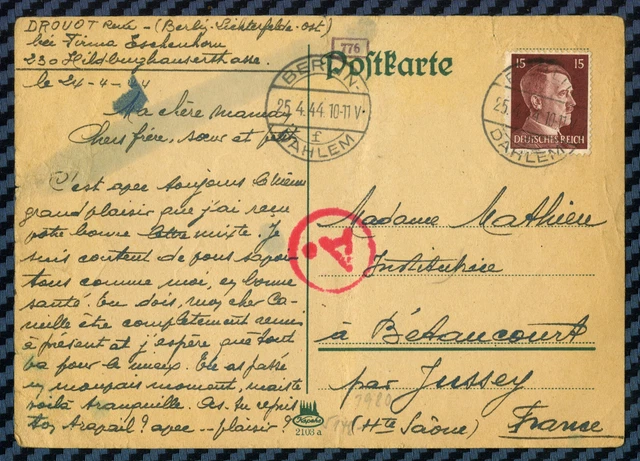 DROUOT René - (Berlin-Lichterfelde-Ost)
bei Firma Eschenhorn
230 Hildburghauserstrasse.
le 24-4-44
Ma chère maman
Chers frère, sœur et petit
C'est avec toujours le même
grand plaisir que j'ai reçu
votre bonne lettre mixte. Je
suis content de vous savoir
tous comme moi, en bonne
santé. Tu dois, mon cher Ca-
mille être complètement remis
à présent et j'espère que tout
va pour le mieux. Tu as passé
un mauvais moment, mais te
voilà tranquille. As-tu repris
ton travail? avec -- plaisir?
776
Postkarte
BERLIN-
25.4.44.10-11 V.
f
DAHLEM
15 15
DEUTSCHES REICH
25.
DAHLEM
A.
Madame Mathieu
Institutrice
à Bétancourt
par Jussey
(Hte Saône) France
2108 a